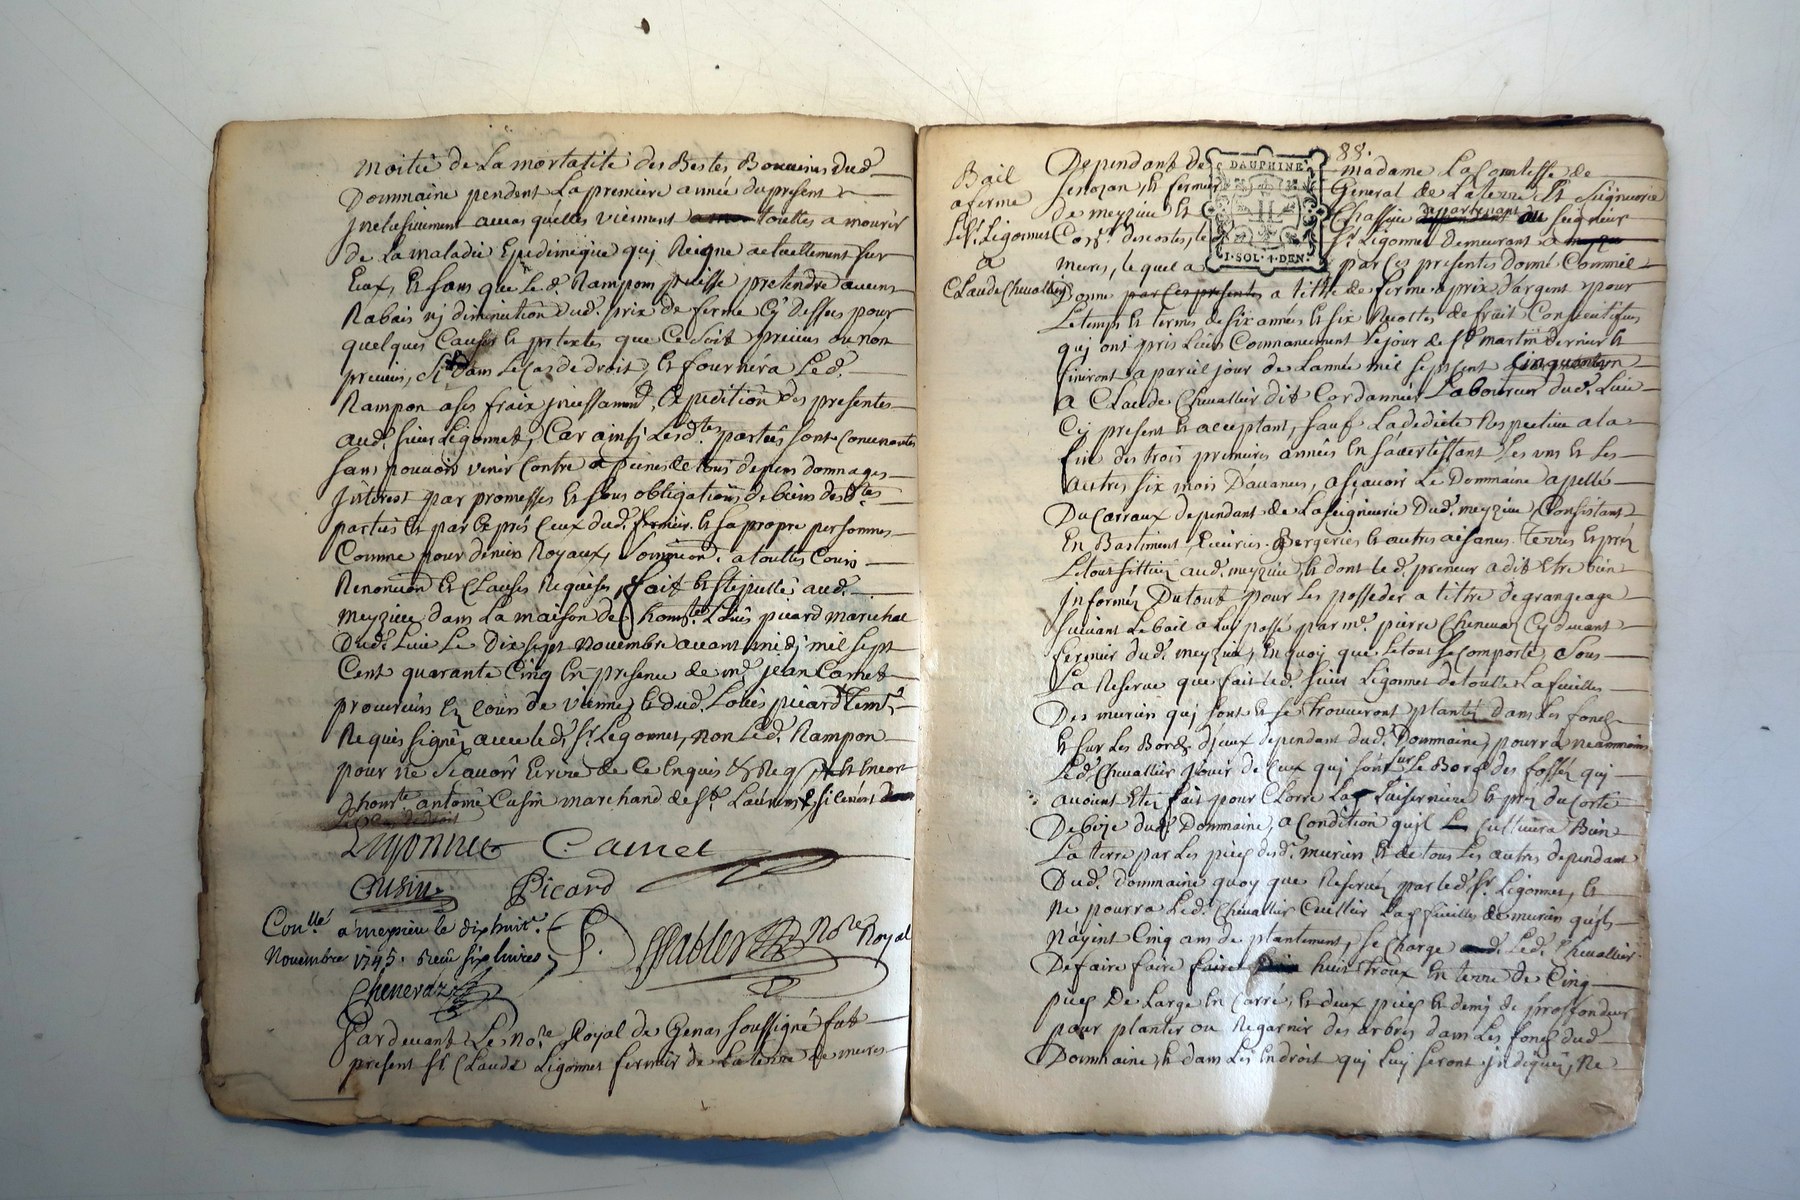 moitié de La mortalité des Bestes Bouuines dud.
Dommaine pendent La premiere année du present
Inclusiuement aucas quelles viennent touttes a mourir
de La maladie Epidimique quj Reigne actuellement sur
Eux, et sans que Le d. Rampon puisse pretendre aucun
Rabais nj diminution dud. prix de ferme Cy dessus pour
quelques Causes et prétextes que Ce soit preuus ou non
preuus, dans Le Cas de droit, et fournira Led.
Rampon a ses fraix Incessamend. Expedition des presentes
aud. sieur Ligonnet, Car ainsj Lesd.tes parties sont Conuenantes
sans pouuoir venir Contre a peines de tous depens dommages
Interest par promesses et sous obligations de biens desd.tes
parties et par Exprés Ceux dud. fermier et sa propre personne
Comme pour deniers Royaux, a touttes Cours
Renonciaon et Clauses Requises, fait et stipullé aud.
meyzieu dans La maison de honte. Loüis picard marechal
Dud. Lieu Le Dix sept nouembre auant midj mil sept
Cent quarante Cinq En presence de me. jean Carnet
procureur Ez cours de vienne, et dud. Loüis picard tems.
Requis signéz auec led. sr. Ligonnet, non Led. Rampon
pour ne sçauoir Ecrire de Ce Enquis & Req et Encor
d'honte. antoine Cusin marchand de st. Laurent,
Ligonnet Carnet
Cusin Picard
Con.llé a meyzieu le dix huit.
Novembre 1745. Receu six livres
Sablier No.re Royal
Chenevaz
Pardeuant Le No.re Royal de Genas soussigné fut
present sr. Claude Ligonnet fermier de La terre de mures
88.
DAUPHINÉ
1 · SOL · 4 · DEN.
Bail
a ferme
Le Sr. Ligonnet
a
Claude Chevallier
Dependant de madame La Comtesse de
Senozan, et fermier General de La terre et Seigneurie
de meyzieu et Chassieu
sr. Ligonnet Demeurant a
mures, le quel a par Ces presentes donné Comme il
Donne par Ces presentes a tittre de ferme a prix d'argent pour
Le temps et terme de six années et six Recoltes de fruit Consecutifues
quj ont pris Leurs Commancement Le jour de st. martin dernier et
finiront a pareil jour de Lannée mil sept Cent Cinquante un
a Claude Chevallier dit Cordannier Laboureur dud. Lieu
Cy present et acceptant, sauf La dedicte Respectiue a la
fin des trois premieres années En s'auertissant Les uns et Les
autres six mois D'auance, a sçauoir Le Dommaine apellé
Du Carraux dependant de La seigneurie Dud. meyzieu Consistant
En Bastiment, Ecuries. Bergeries et autres aisances. Terres et préz
Le tout sittué aud. meyzieu, et dont le d. preneur a dit Etre bien
Informéz Du tout pour Les posseder a tittre de grangeage
suiuant Le bail a Luy passé par me. pierre Cheneuaz Cy deuant
fermier dud. meyzieu, En quoy que Le tout se Comporte, Sous
La Reserue que fait led. sieur Ligonnet de toutte La feuilles
Des muriers quj sont et se trouueront planté dans Les fonds
et sur Les Bords d'jceux dependant dud. Dommaine, pourra neanmoins
Led. Chevallier Jouir de Ceux quj sont sur Le Bord des fosséz quj
auoient Eté fait pour Clorre La Luisernière et préz du Coste
De bize dud. Dommaine, a Condition quil Cultiuera Bien
La terre par Les pieds desd. muriers et de tous Les autres dependant
Dud. Dommaine quoy que Reseruéz par led. sr. Ligonnet, et
ne pourra Led. Chevallier Cueillir Las feuilles de murier quils
N'ayent Cinq ans de plantement, se Charge Led. Chevallier
De faire faire huit Troux En terre de Cinq
pieds De Large En Carré, et deux pieds et demj de proffondeur
pour planter ou Regarnir des arbres dans Les fonds dud.
Dommaine, et dans Les Endroit quj Luy seront Indiquéz, Ne